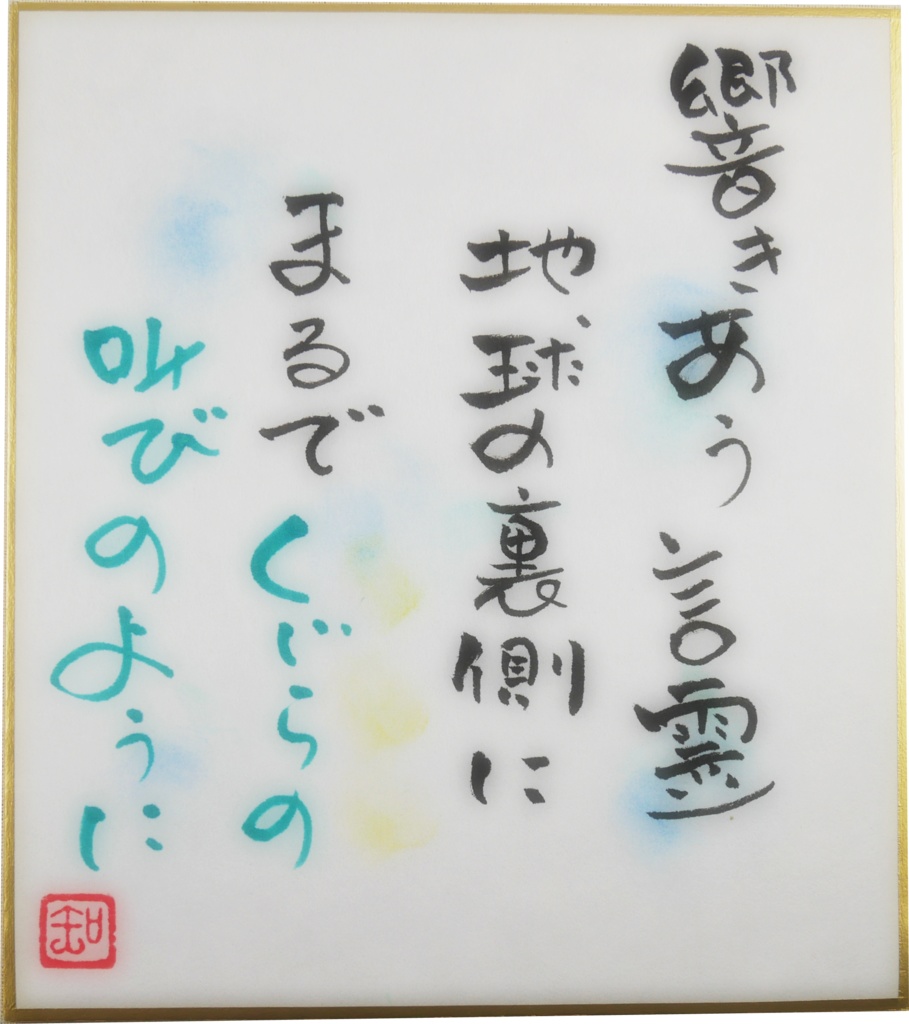 響きあう言霊
地球の裏側に
まるでくじらの
叫びのように
知